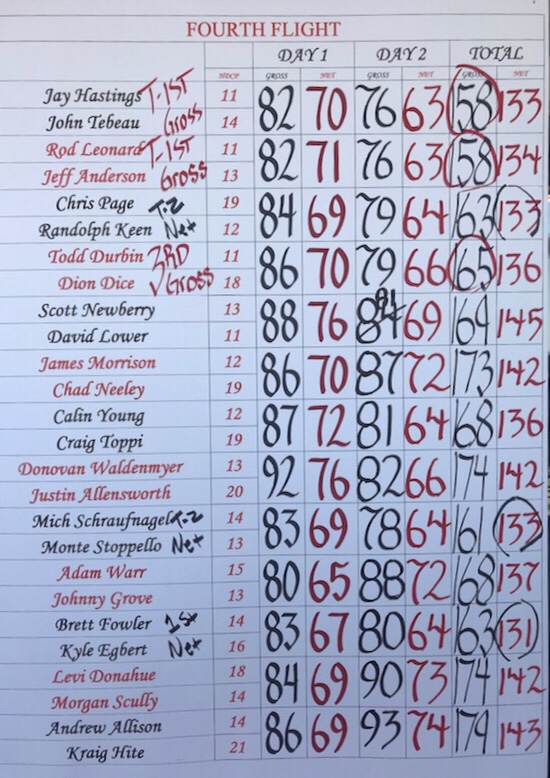 FOURTH FLIGHT
DAY 1 DAY 2 TOTAL
HDCP GROSS NET GROSS NET GROSS NET
Jay Hastings T-1ST 11 82 70 76 63 158 133
John Tebeau Gross 14
Rod Leonard T-1ST 11 82 71 76 63 158 134
Jeff Anderson Gross 13
Chris Page T-2 19 84 69 79 64 163 133
Randolph Keen Net 12
Todd Durbin 3RD 11 86 70 79 66 165 136
Dion Dice Gross 18
Scott Newberry 13 88 76 81 69 169 145
David Lower 11
James Morrison 12 86 70 87 72 173 142
Chad Neeley 19
Calin Young 12 87 72 81 64 168 136
Craig Toppi 19
Donovan Waldenmyer 13 92 76 82 66 174 142
Justin Allensworth 20
Mich Schraufnagel T-2 14 83 69 78 64 161 133
Monte Stoppello Net 13
Adam Warr 15 80 65 88 72 168 137
Johnny Grove 13
Brett Fowler 1st 14 83 67 80 64 163 131
Kyle Egbert Net 16
Levi Donahue 18 84 69 90 73 174 142
Morgan Scully 14
Andrew Allison 14 86 69 93 74 179 143
Kraig Hite 21